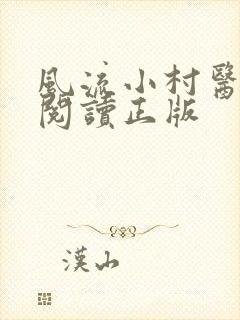 風流小村醫
閱讀正版
漢山